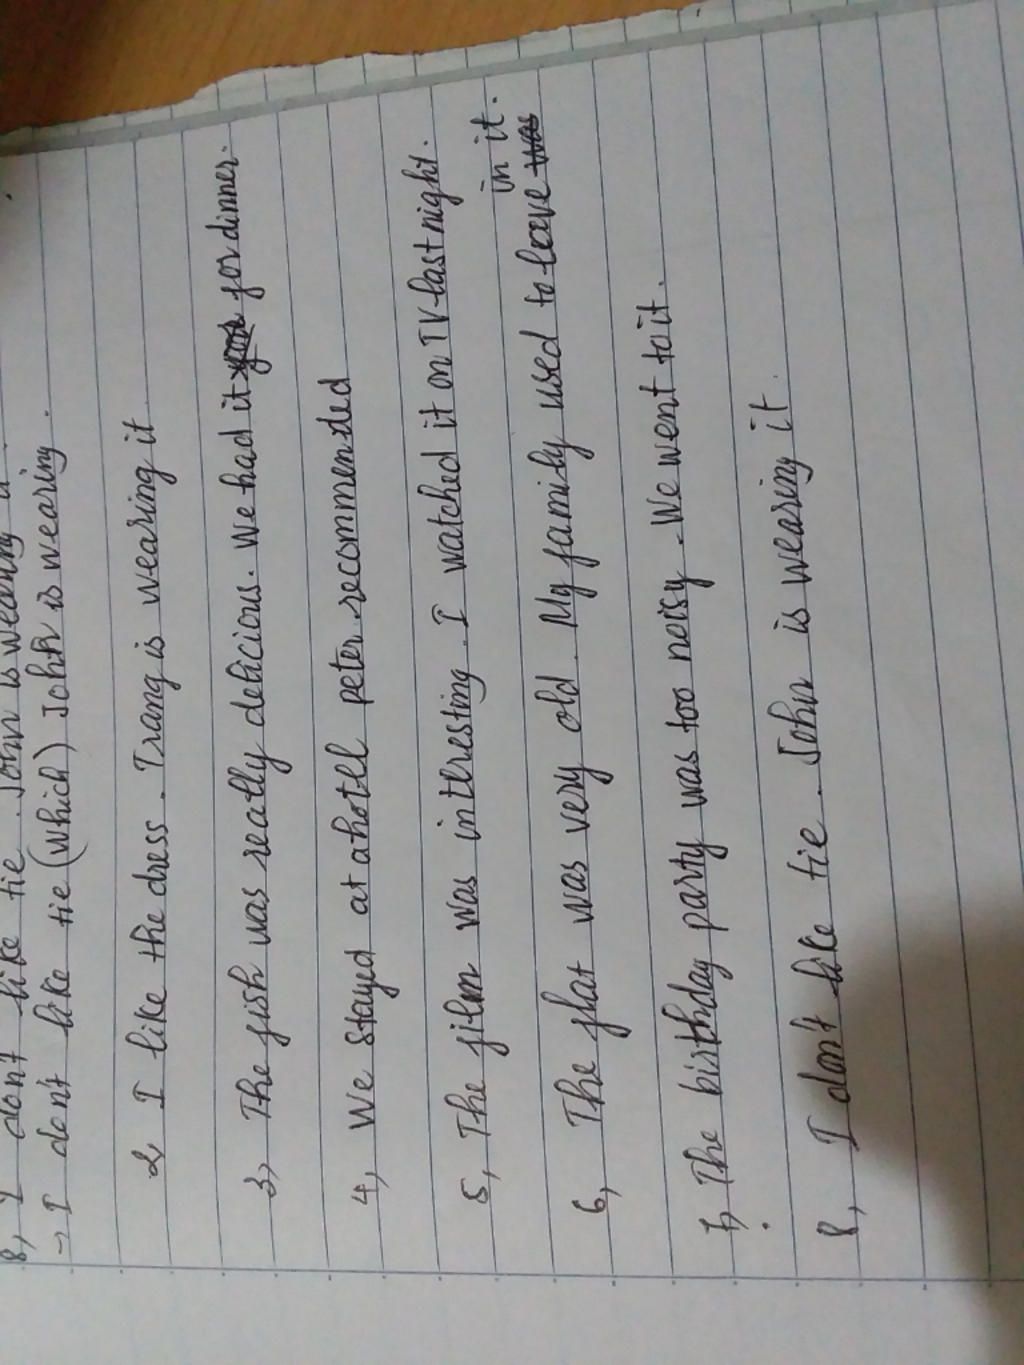 8, I don't like tie. John is wearing it.
→ I don't like tie (which) John is wearing.
2, I like the dress. Trang is wearing it
3, The fish was really delicious. We had it for dinner.
4, We stayed at a hotel peter recommended
5, The film was interesting. I watched it on TV last night.
6, The flat was very old. My family used to leave in it.
7, The birthday party was too noisy. We went to it.
8, I don't like tie. John is wearing it.